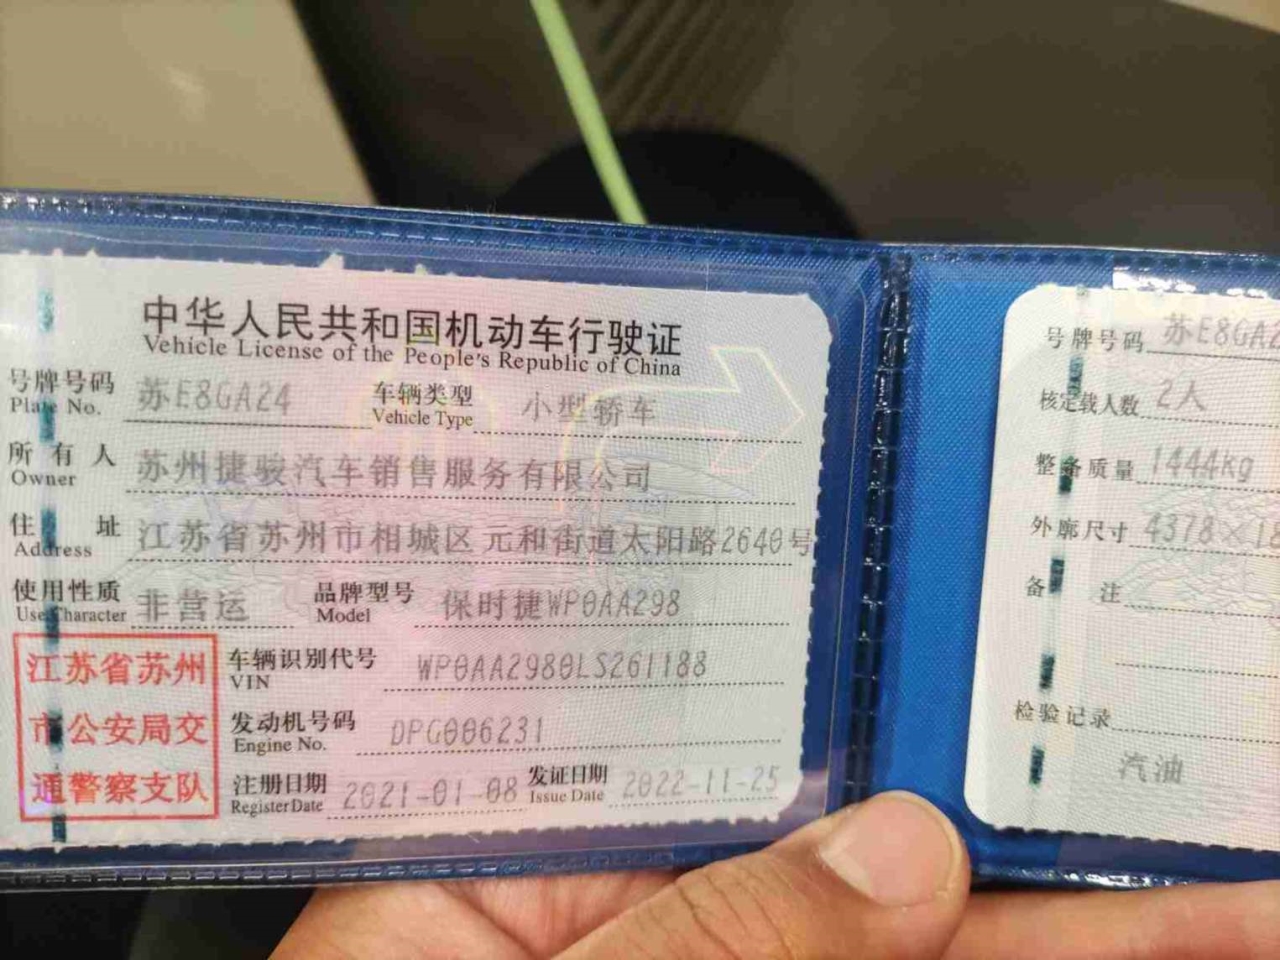 中华人民共和国机动车行驶证
Vehicle License of the People's Republic of China
号牌号码 苏E8GA24 车辆类型 小型轿车
Plate No. Vehicle Type
所有人 苏州捷骏汽车销售服务有限公司
Owner
住址 江苏省苏州市相城区元和街道太阳路2640号
Address
使用性质 非营运 品牌型号 保时捷WP0AA298
Use Character Model
江苏省苏州
市公安局交
通警察支队
车辆识别代号 WP0AA2980LS261188
VIN
发动机号码 DPG006231
Engine No.
注册日期 2021-01-08 发证日期 2022-11-25
Register Date Issue Date
号牌号码 苏E8GA2
核定载人数 2人
整备质量 1444kg
外廓尺寸 4378×18
备注
检验记录
汽油